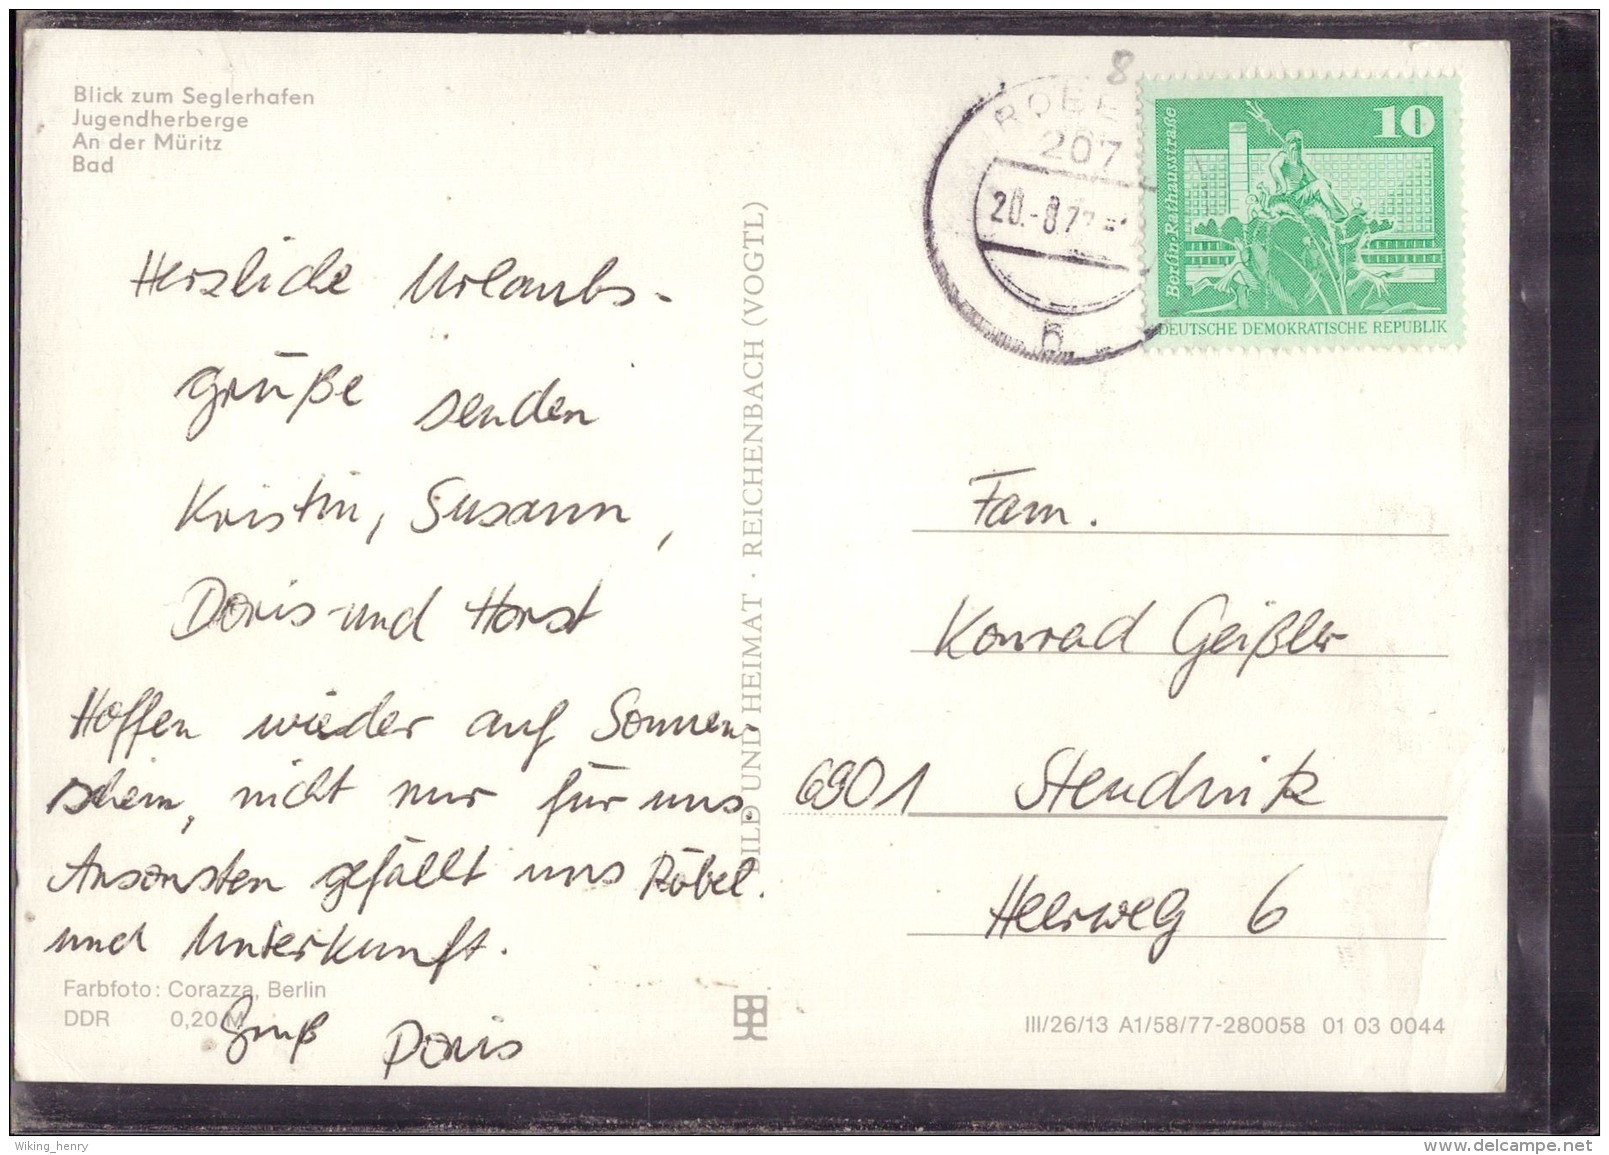 Blick zum Seglerhafen
Jugendherberge
An der Müritz
Bad
Herzliche Urlaubs-
grüße senden
Kristin, Susann,
Doris und Horst
Hoffen wieder auf Sonnen-
schein, nicht nur für uns.
Ansonsten gefällt uns Röbel.
und Unterkunft.
Gruß Doris
Farbfoto: Corazza, Berlin
DDR 0,20 M
BILD UND HEIMAT · REICHENBACH (VOGTL)
8
207
20.-8.77
h
10
Berlin-Rathausstraße
DEUTSCHE DEMOKRATISCHE REPUBLIK
Fam.
Konrad Geißler
6901 Stendnitz
Heerweg 6
III/26/13 A1/58/77-280058 01 03 0044
Wiking_henry
www.delcampe.net